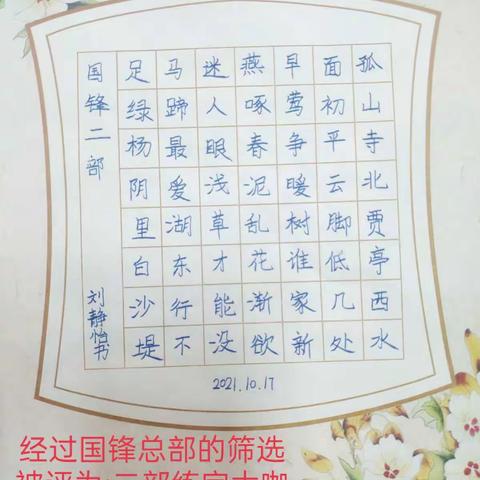 孤山寺北贾亭西水
面初平云脚低几处
早莺争暖树谁家新
燕啄春泥乱花渐欲
迷人眼浅草才能没
马蹄最爱湖东行不
足绿杨阴里白沙堤
国锋二部 刘静怡书
2021.10.17
经过国锋总部的筛选
被评为:二部练字大咖